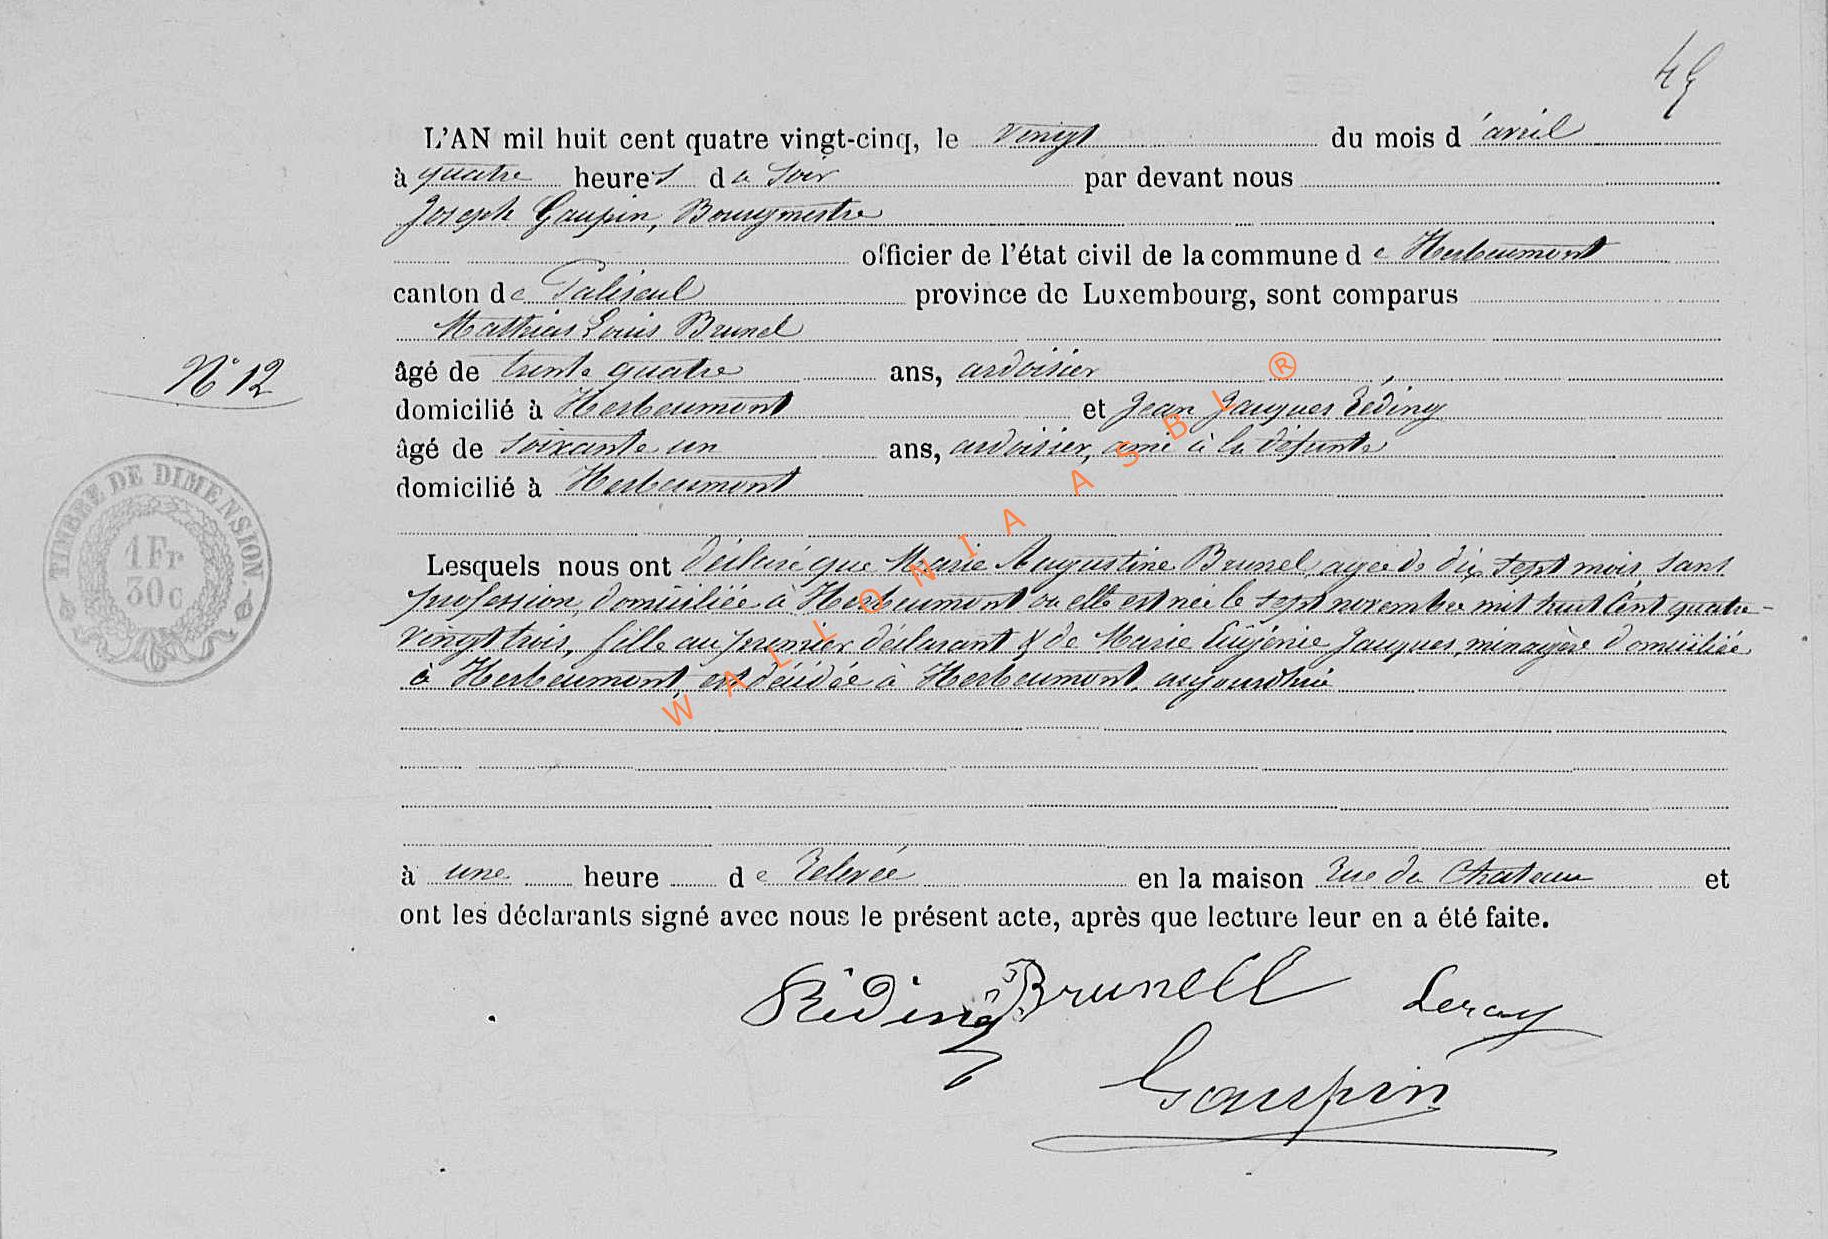 49
L'AN mil huit cent quatre vingt-cinq, le vingt du mois d'avril
à quatre heures du soir par devant nous
Joseph Gaupin, Bourgmestre
officier de l'état civil de la commune de Herbeumont
canton de Paliseul province de Luxembourg, sont comparus
Mathias Louis Brunel
N° 12
âgé de trente quatre ans, ardoisier,
domicilié à Herbeumont et Jean Jacques Réding
âgé de soixante un ans, ardoisier, ami à la défunte
domicilié à Herbeumont
TIMBRE DE DIMENSION
1 Fr
30 c
Lesquels nous ont déclaré que Marie Augustine Brunel, agée de dix sept mois, sans
profession, domiciliée à Herbeumont ou elle est née le sept novembre mil huit cent quatre-
vingt trois, fille au premier déclarant & de Marie Eugénie Jacques, ménagère domiciliée
à Herbeumont, est décédée à Herbeumont, aujourd'hui
à une heure de relevée en la maison rue du Chateau et
ont les déclarants signé avec nous le présent acte, après que lecture leur en a été faite.
Réding Brunell Leray
Gaupin
WALLONIA ASBL ®